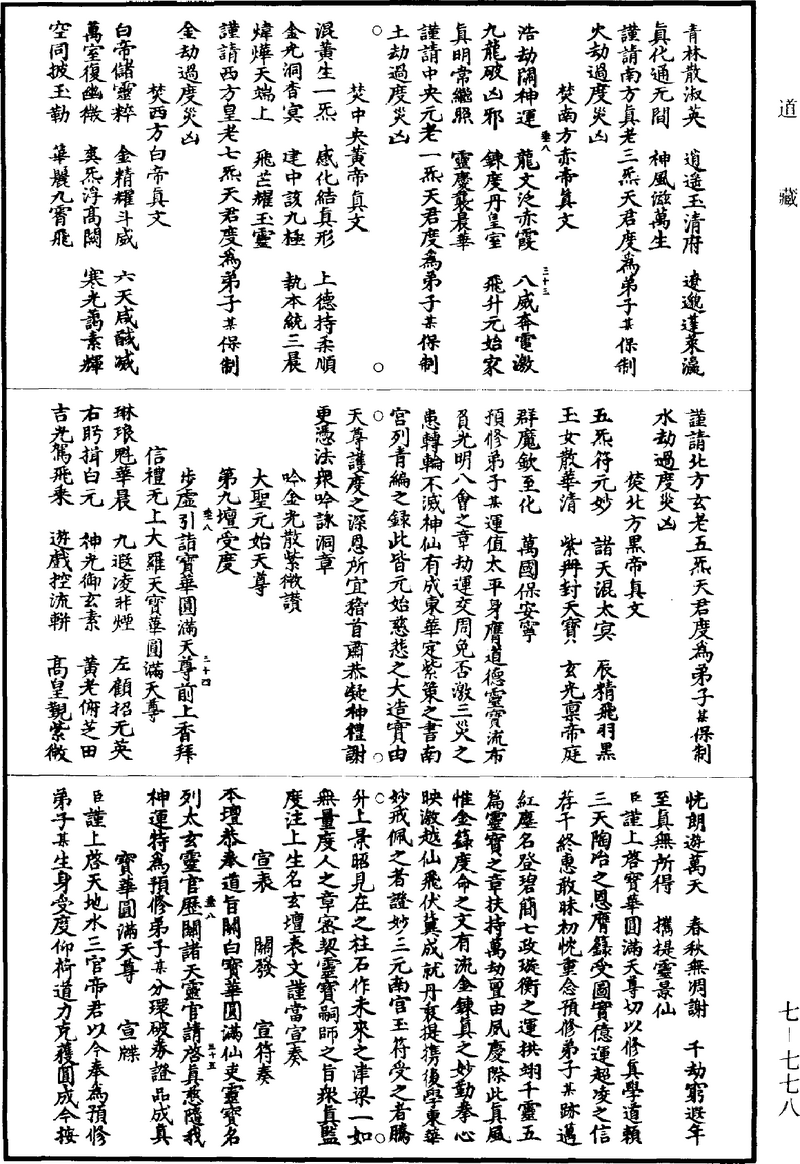 道藏
青林散淑英　逍遙玉清府　遼邈蓬萊瀛
真化通元間　神風滋萬生
謹請南方真老三炁天君度為弟子某保制
火劫過度災凶
焚南方赤帝真文
浩劫開神運　龍文泛赤霞　八威奔電激
九龍破凶邪　鍊度丹皇室　飛升元始家
真明常繼照　靈慶襲晨華
謹請中央元老一炁天君度為弟子某保制
土劫過度災凶
焚中央黃帝真文
混黃生一炁　感化結真形　上德持柔順
金光洞杳冥　建中該九極　執本統三晨
煒燁天端上　飛芒耀玉靈
謹請西方皇老七炁天君度為弟子某保制
金劫過度災凶
焚西方白帝真文
白帝儲靈粹　金精耀斗威　六天咸馘滅
萬室復幽微　爽炁浮高闕　寒光藹素輝
空同披玉勒　華麗九霄飛
謹請北方玄老五炁天君度為弟子某保制
水劫過度災凶
焚北方黑帝真文
五炁符元妙　諸天混太冥　辰精飛羽黑
玉女散華清　紫冊封天寶　玄光稟帝庭
群魔欽至化　萬國保安寧
預修弟子某運值太平身膺道德靈寶流布
負光明八會之章劫運交周免否激三災之
患轉輪不滅神仙有成東華定紫策之書南
宮列青編之錄此皆元始慈悲之大造實由
天尊護度之深恩所宜稽首肅恭凝神禮謝
更憑法眾吟詠洞章
吟金光散紫微讚
大聖元始天尊
第九壇受度
步虛引詣寶華圓滿天尊前上香拜
信禮无上大羅天寶華圓滿天尊
琳琅魁華晨　九遐凌非煙　左顧招无英
右眄揖白元　神光御玄素　黃老俯芝田
吉光駕飛乘　遊戲控流軿　高皇覲紫微
恍朗遊萬天　春秋無凋謝　千劫窮遐年
至真無所得　攜提靈景仙
臣謹上啓寶華圓滿天尊切以修真學道賴
三天陶冶之恩膺籙受圖實億運超凌之信
荐干終惠敢昧初忱重念預修弟子某跡邁
紅塵名登碧簡七政璇衡之運拱翊千靈五
篇靈寶之章扶持萬劫亶由夙慶際此真風
惟金籙度命之文有流金鍊真之妙勤拳心
映激越仙飛伏冀成就丹敦提携復學東華
妙戒佩之者證妙三元南宮玉符受之者騰
升上景昭見在之柱石作未來之津梁一如
無量度人之章密契靈寶嗣師之旨眾真監
度注上生名玄壇表文謹當宣奏
宣表　關發　宣符奏
本壇恭奉道旨關白寶華圓滿仙吏靈寶名
列太玄靈官歷關諸天靈官請啓真慈隨我
神運特為預修弟子某分環破券證品成真
寶華圓滿天尊　宣牒
臣謹上啓天地水三官帝君以今奉為預修
弟子某生身受度仰荷道力克獲圓成今按
七－七七八